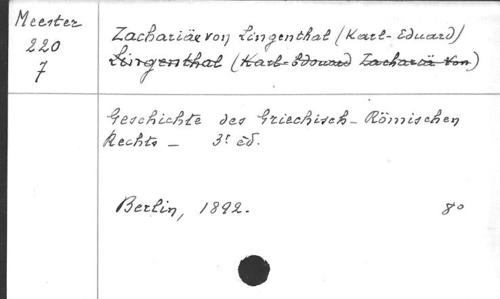 Meester
220
7
Zachariäe von Lingenthal (Karl-Eduard)
Lingenthal (Karl-Edouard Zachariä von)
Geschichte des Griechisch-Römischen
Rechts _ 3e éd.
Berlin, 1892. 8o